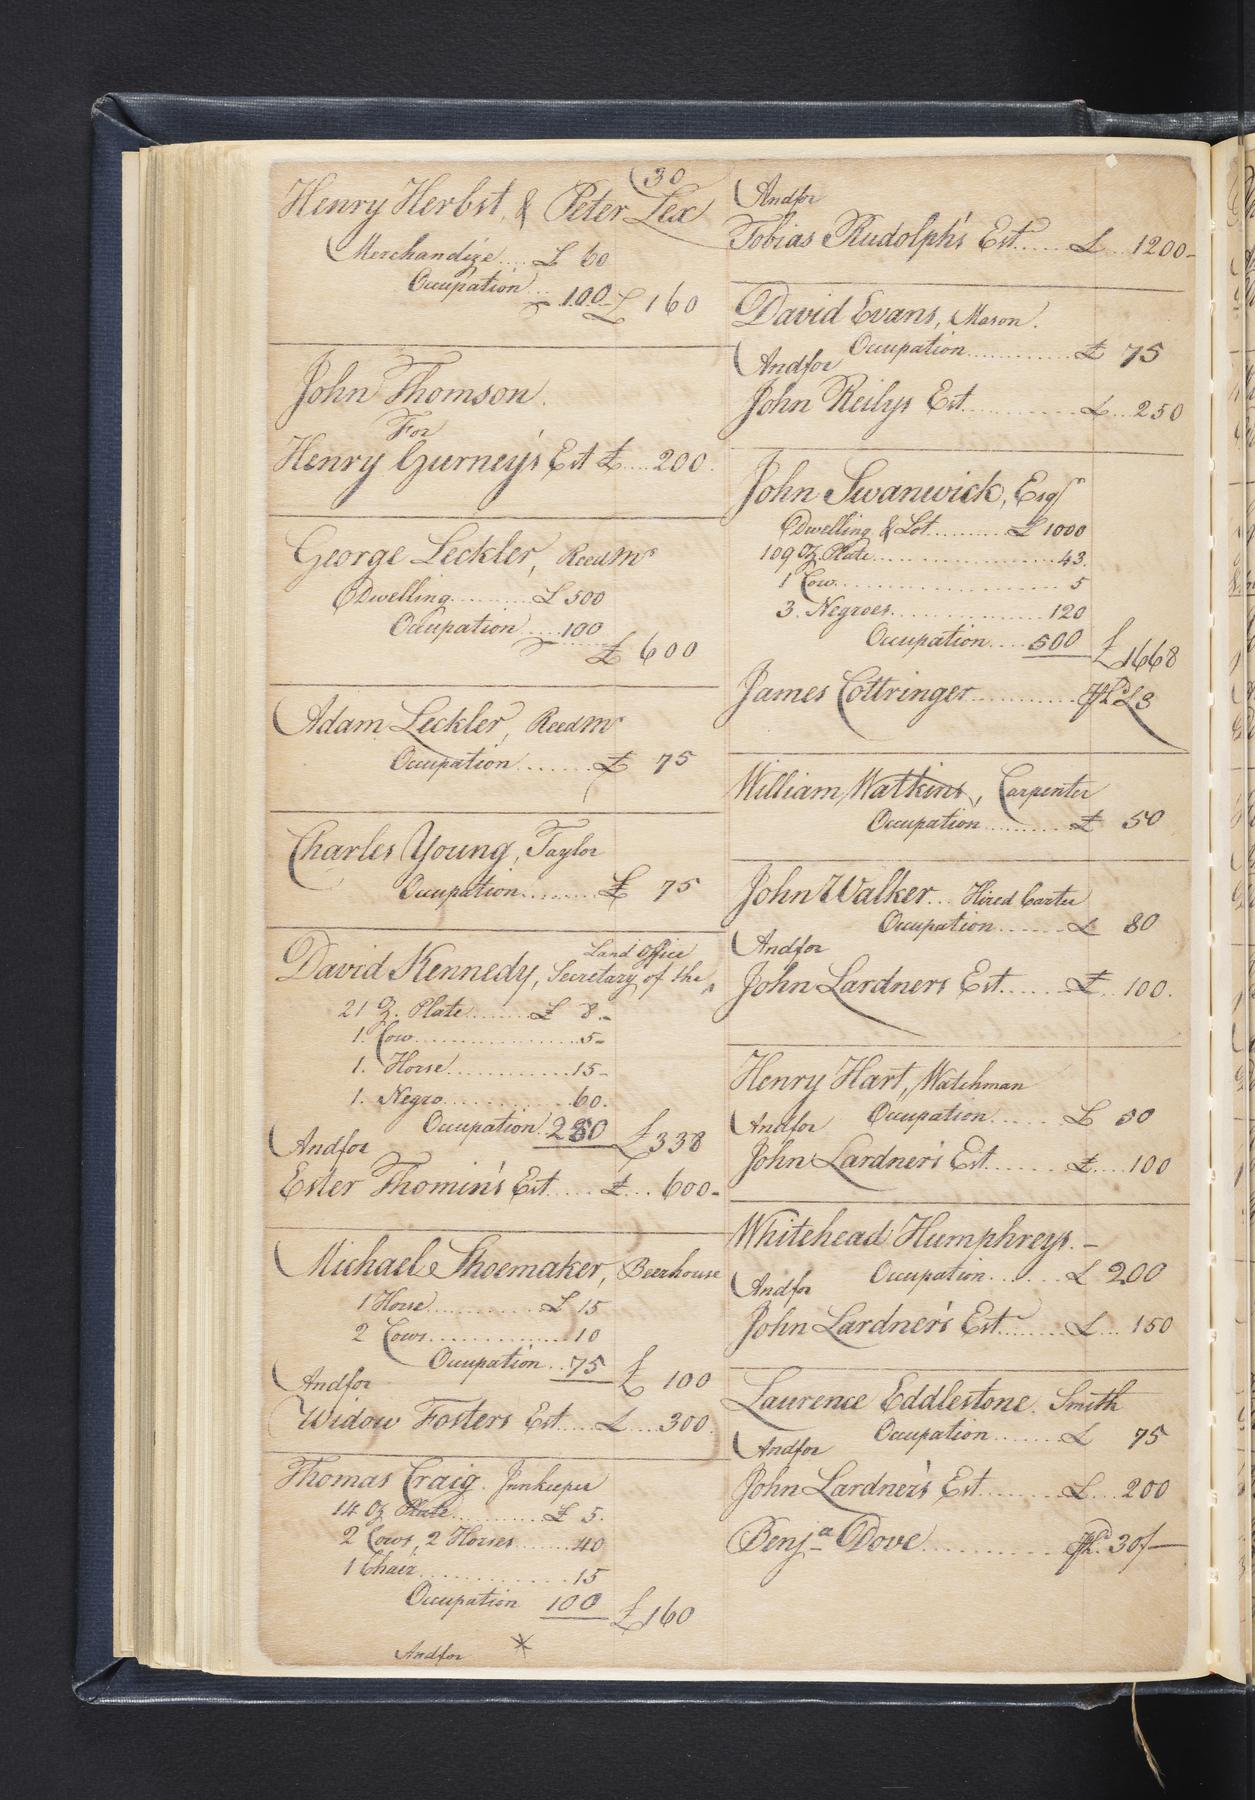 (30
Henry Herbst, & Peter Lex
Merchandize.... £ 60
Occupation... 100 £ 160
John Thomson.
For
Henry Gurney's Est £.... 200.
George Leckler, Reedmr
Dwelling......... £ 500
Occupation.... 100
£ 600
Adam Leckler, Reedmr
Occupation....... £ 75
Charles Young, Taylor
Occupation........ £ 75
Land Office
David Kennedy, Secretary of the ^
21 Oz. Plate....... £ 8.-
1. Cow.................. 5-
1. Horse............. 15-
1. Negro............. 60.
Occupation. 250 £338
Andfor
Ester Thomin's Est..... £... 600-
Michael Shoemaker, Beerhouse
1 Horse............ £ 15
2 Cows................ 10
Occupation.. 75 £ 100
Andfor
Widow Fosters Est.... £.... 300.
Thomas Craig. Innkeeper
14 Oz Plate......... £ 5.
2 Cows, 2 Horses....... 40
1 Chair................ 15
Occupation 100 £160
Andfor *
Andfor
Tobias Rudolph's Est..... £... 1200-
David Evans, Mason.
Occupation............ £ 75
Andfor
John Reilys Est............ £... 250
John Swanwick, Esqr
Dwelling & Lot......... £ 1000
109 Oz. Plate.................... 43.
1 Cow........................ 5
3. Negroes................ 120
Occupation.... 500 £1668
James Cottringer........... Phd £3
William Watkins, Carpenter
Occupation......... £ 50
John Walker... Hired Carter
Occupation....... £ 80
Andfor
John Lardners Est....... £... 100.
Henry Hart, Watchman
Occupation...... £ 50
Andfor
John Lardner's Est....... £.... 100
Whitehead Humphreys.-
Occupation....... £ 200
Andfor
John Lardner's Est....... £... 150
Laurence Eddlestone. Smith
Occupation....... £ 75
Andfor
John Lardner's Est........ £... 200
Benja Dove............... Phd. 30/-